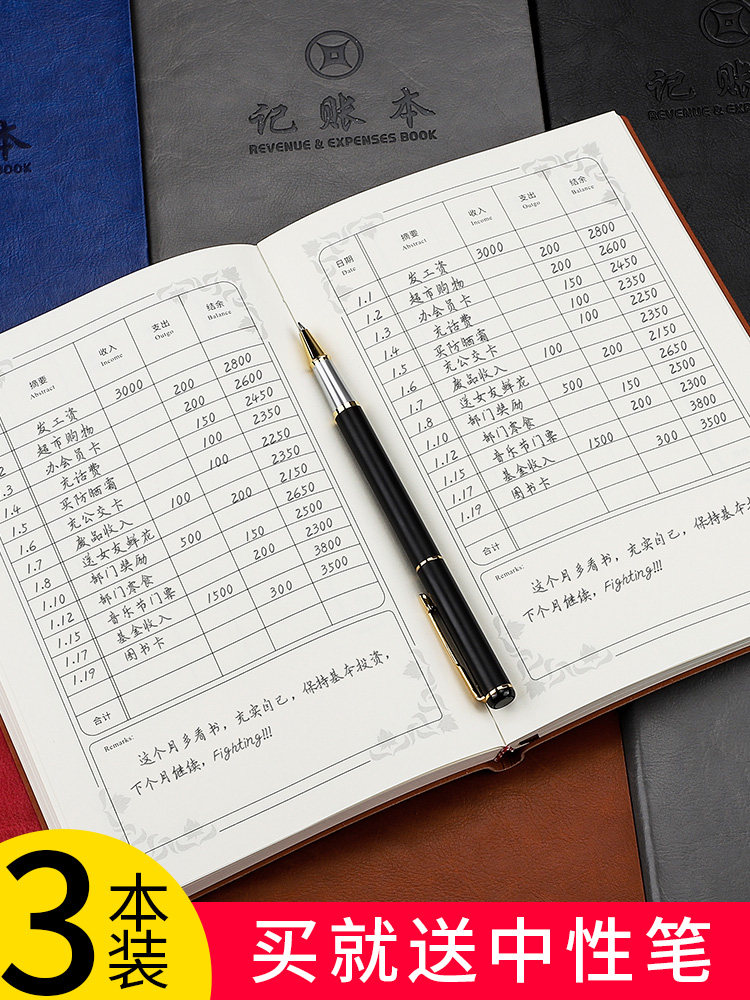 记账本
REVENUE & EXPENSES BOOK
本
BOOK
记账
REVENUE & EXPENSES
摘要 收入 支出 结余
Abstract Income Outgo Balance
发工资 3000
超市购物 200 2800
办会员卡 200 2600
1.3 充话费 150 2450
1.4 买防晒霜 100 2350
1.5 充公交卡 100 2250
1.6 废品收入 100 2350
1.7 送女友鲜花 200 2150
1.8 部门奖励 500 2650
1.10 部门零食 150 2500
1.12 音乐节门票 200 2300
1.15 基金收入 1500 3800
1.17 图书卡 300 3500
1.19
合计
Remarks:
这个月多看书，充实自己，保持基本投资，
下个月继续，Fighting!!!
日期 摘要 收入 支出 结余
Date Abstract Income Outgo Balance
1.1 发工资 3000
1.2 超市购物 200 2800
1.3 办会员卡 200 2600
1.4 充话费 150 2450
1.5 买防晒霜 100 2350
1.6 充公交卡 100 2250
1.7 废品收入 100 2350
1.8 送女友鲜花 200 2150
1.10 部门奖励 500 2650
1.12 部门零食 150 2500
1.15 音乐节门票 200 2300
1.17 基金收入 1500 3800
1.19 图书卡 300 3500
合计
Remarks:
这个月多看书，充实自己，保持基本投
下个月继续，Fighting!!!
3本装
买就送中性笔